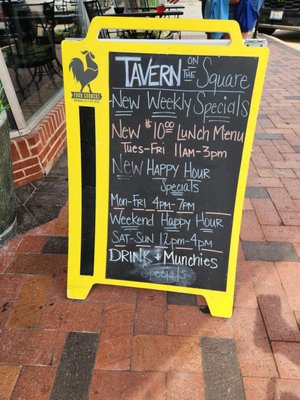 TAVERN ON THE Square
New Weekly Specials
New $10.00 Lunch Menu
Tues-Fri 11am-3pm
New Happy Hour
Specials
Mon-Fri 4pm-7pm
Weekend Happy Hour
Sat-Sun 12pm-4pm
DRINK + Munchies
Specials
FOUR CORNERS